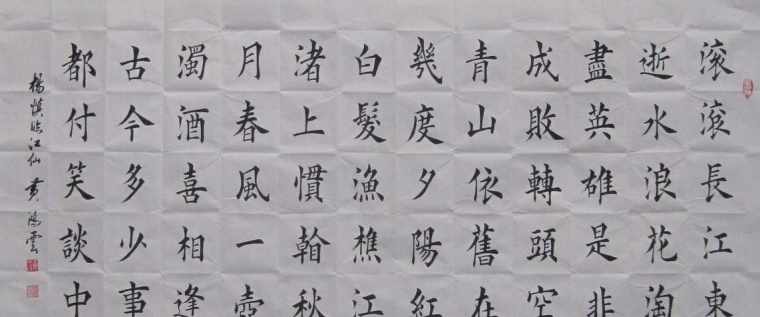 滚滚長江東
逝水浪花淘
盡英雄是非
成敗轉頭空
青山依舊在
幾度夕陽紅
白髮漁樵江
渚上慣翰秋
月春風一壺
濁酒喜相逢
古今多少事
都付笑談中
楊慎臨江仙 黃雲